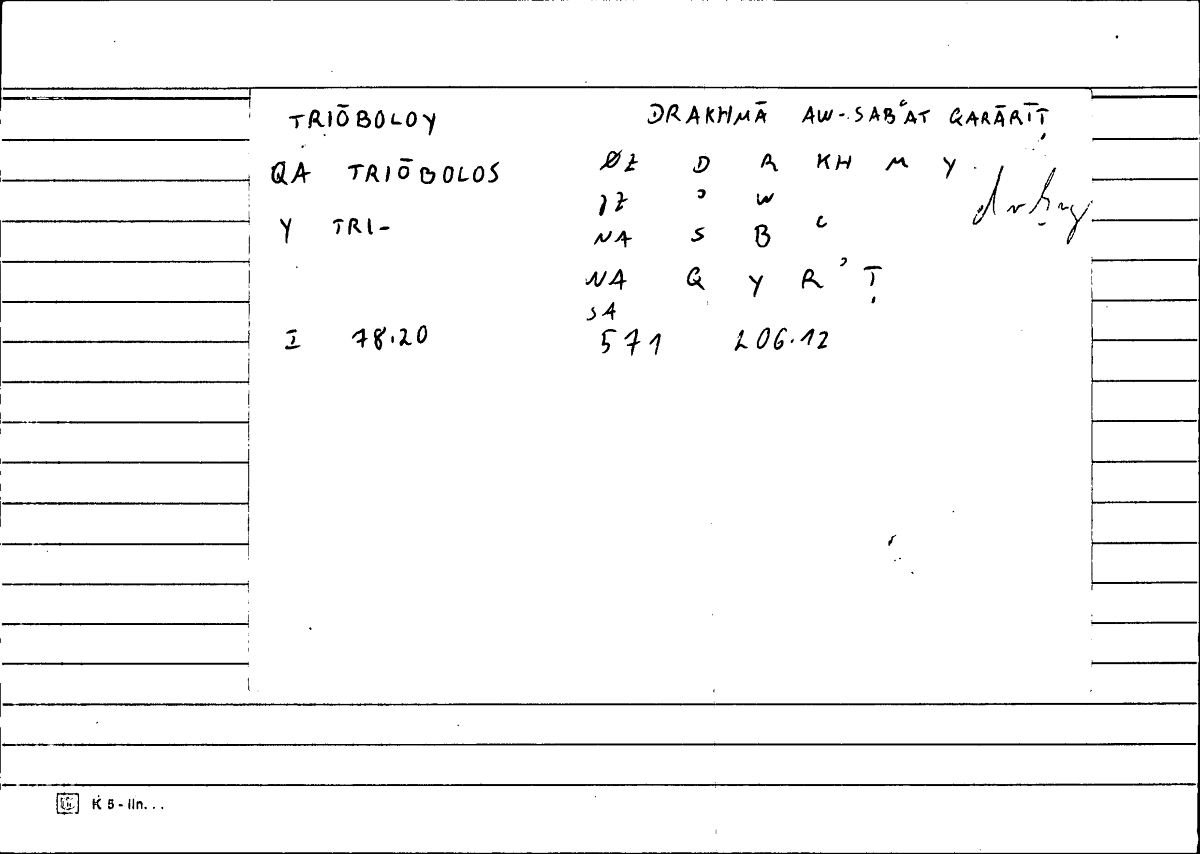 TRIŌBOLOY DRAKHMĀ AW-SABʿAT QARĀRĪṬ
QA TRIŌBOLOS ØZ D R KH M Y.
ʾ W
Y TRI- NA S B ʿ
NA Q Y R ʾ Ṭ
SA
I 78.20 571 206.12
K 5 - lin...